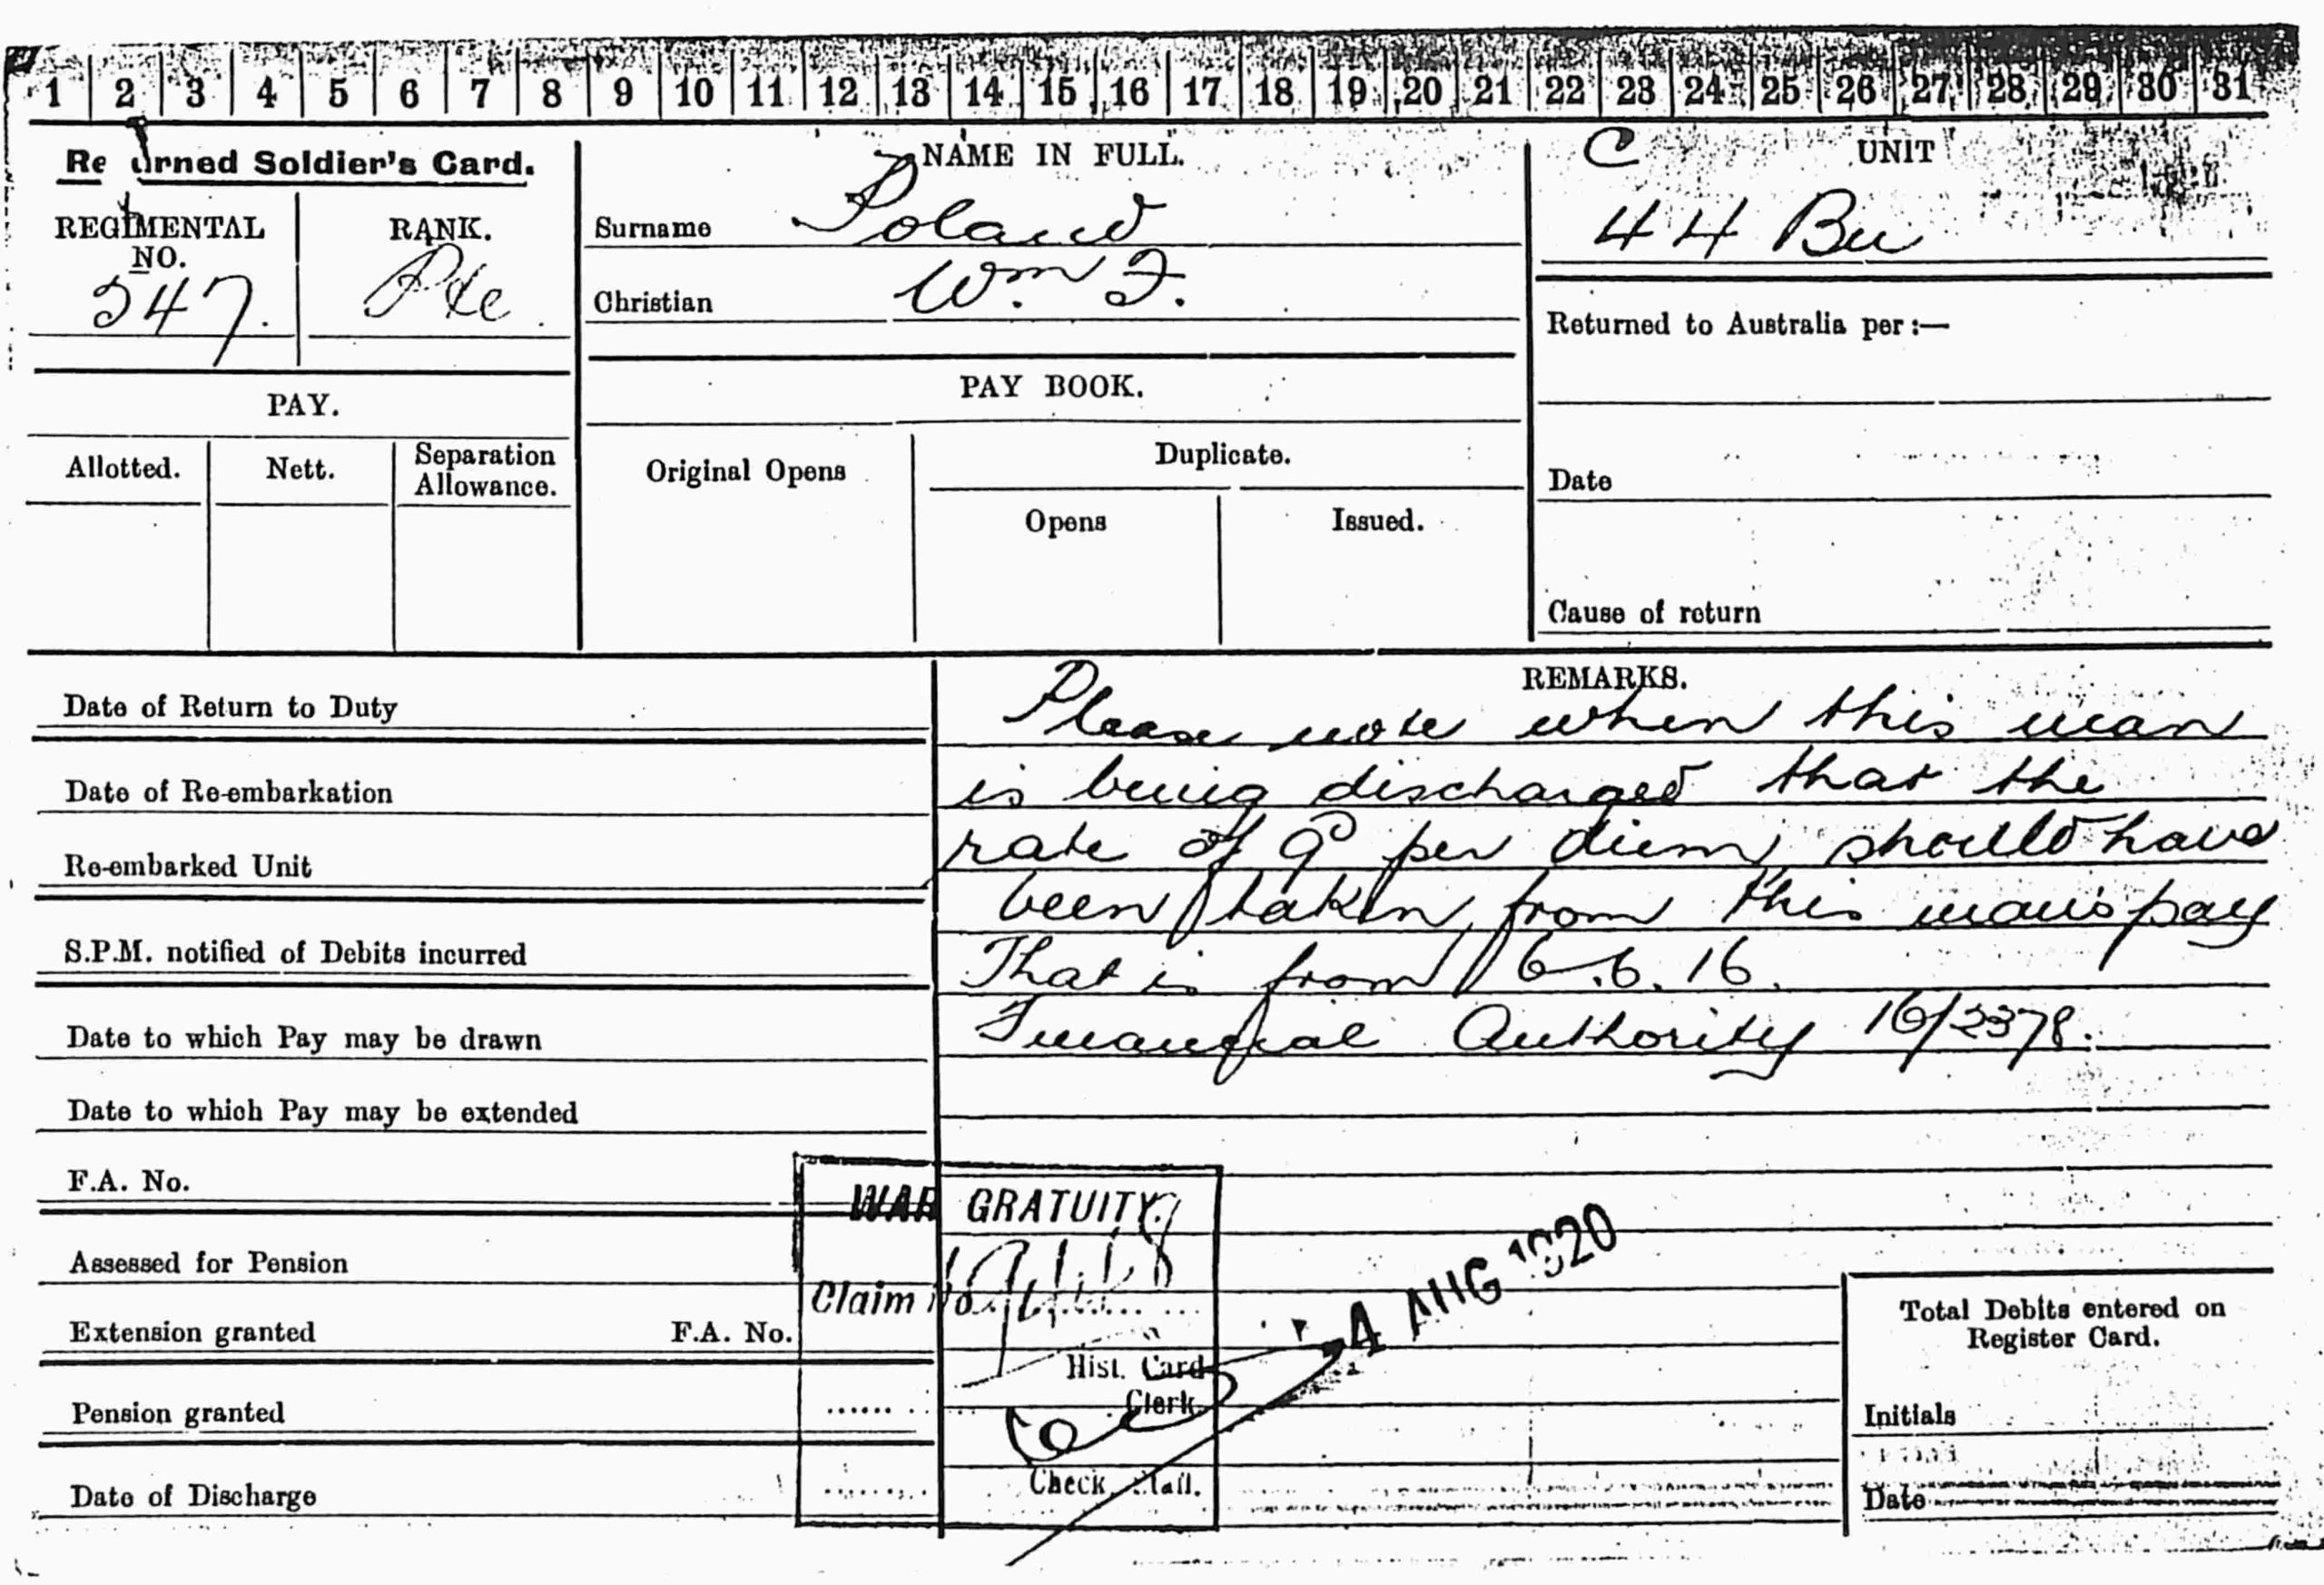 1 2 3 4 5 6 7 8 9 10 11 12 13 14 15 16 17 18 19 20 21 22 23 24 25 26 27 28 29 30 31
Returned Soldier's Card.
REGIMENTAL NO.
547.
RANK.
Pte
NAME IN FULL.
Surname Poland
Christian Wm F.
C UNIT
44 Bn
Returned to Australia per:—
Date
Cause of return
PAY.
Allotted.
Nett.
Separation
Allowance.
PAY BOOK.
Original Opens
Duplicate.
Opens
Issued.
Date of Return to Duty
Date of Re-embarkation
Re-embarked Unit
S.P.M. notified of Debits incurred
Date to which Pay may be drawn
Date to which Pay may be extended
F.A. No.
Assessed for Pension
Extension granted F.A. No.
Pension granted
Date of Discharge
REMARKS.
Please note when this man
is being discharged that the
rate of per diem should have
been taken from this man's pay
That is from 6.6.16.
Financial Authority 16/2378.
WAR GRATUITY.
Claim No.
Hist. Card
Clerk.
Check
4 AUG 1920
Total Debits entered on
Register Card.
Initials
Date